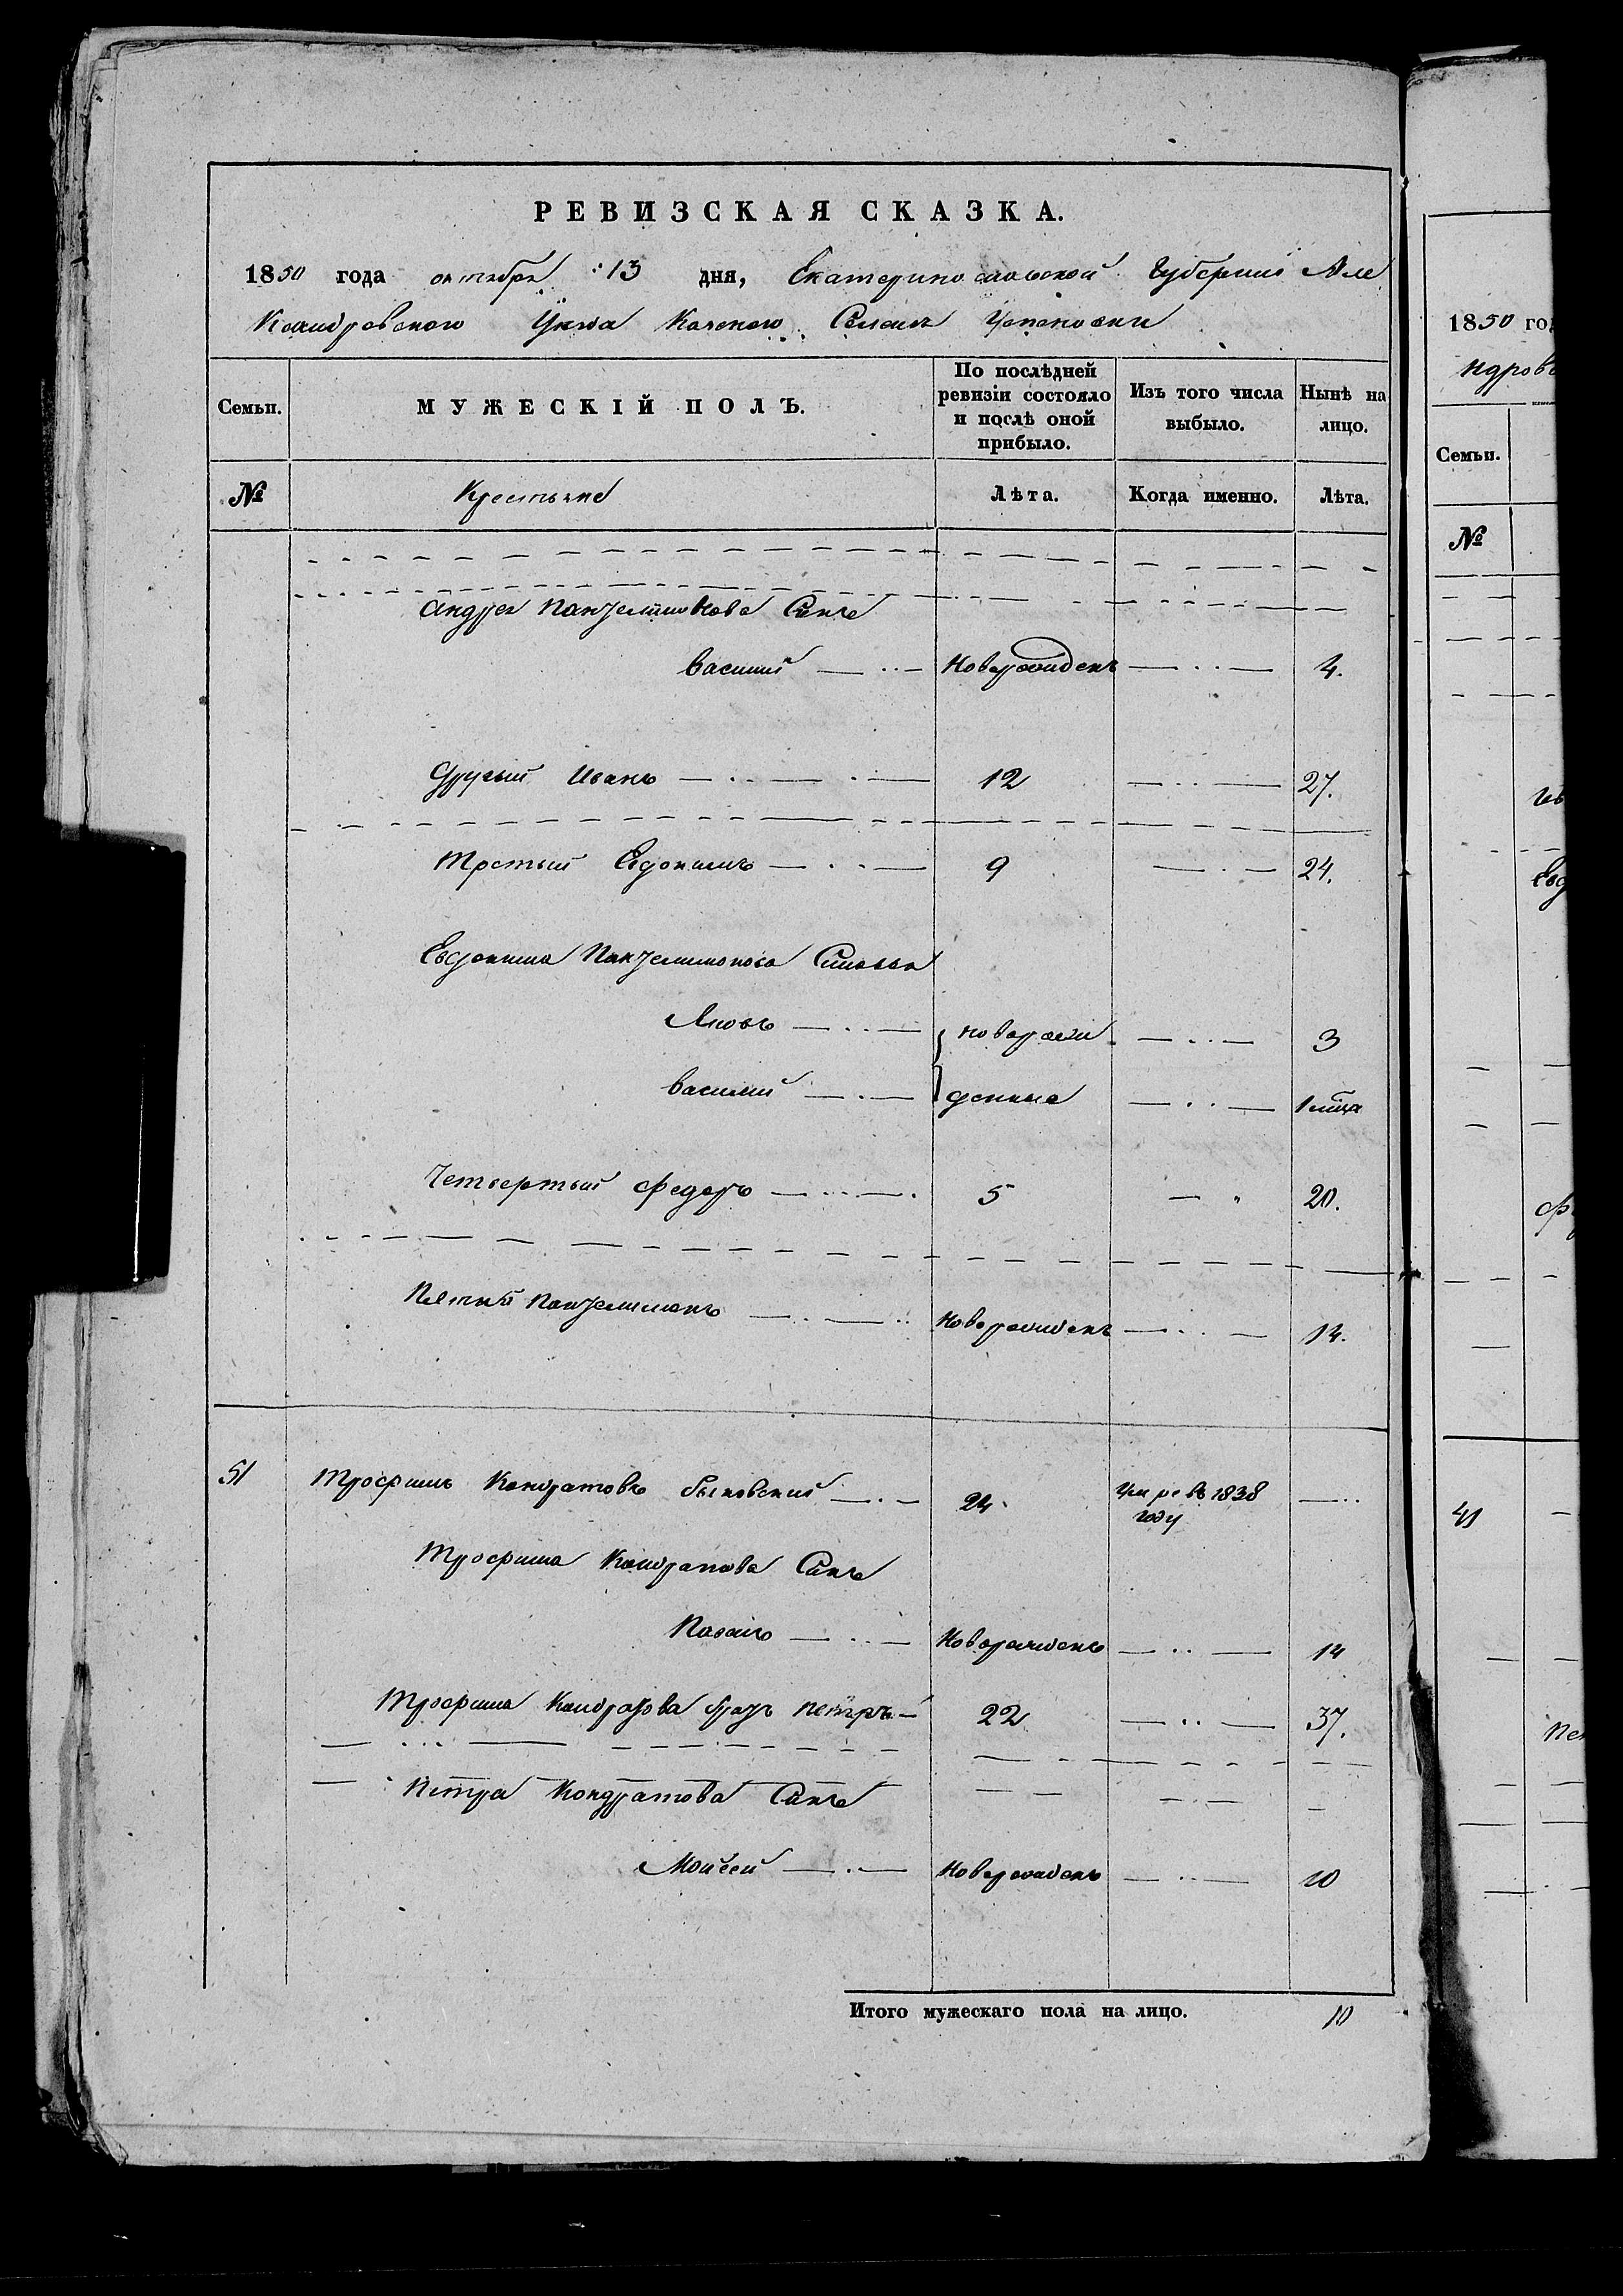 РЕВИЗСКАЯ СКАЗКА.
1850 года октября 13 дня, Екатеринославской Губернии Але
ксандровского Уезда Казеного Селения
Семьи. МУЖЕСКІЙ ПОЛЪ. По послѣдней ревизіи состояло и послѣ оной прибыло. Изъ того числа выбыло. Нынѣ на лицо.
№ Крестьяне Лѣта. Когда именно. Лѣта.
Андрея Пантелимонова Сынъ
Василий Новорожденъ 4.
Другий Иванъ 12 27.
Третий Евдокимъ 9 24.
Евдокима Пантелимонова Сыновья
Яковъ новорож 3
Василий денные 1 мца
Четвертый Федоръ 5 20.
Пятый Пантелимонъ Новорожденъ 14.
51 Трофимъ Кондратовъ Быковский 24 Умре въ 1838 году
Трофима Кондратова Сынъ
Павелъ Новорожденъ 14
Трофима Кондратова братъ Петръ 22 37.
Петра Кондратова Сынъ
Моисей Новорожденъ 10
Итого мужескаго пола на лицо. 10
1850 го
ндров
Семьи.
№
Евд
Ф
41
Пе